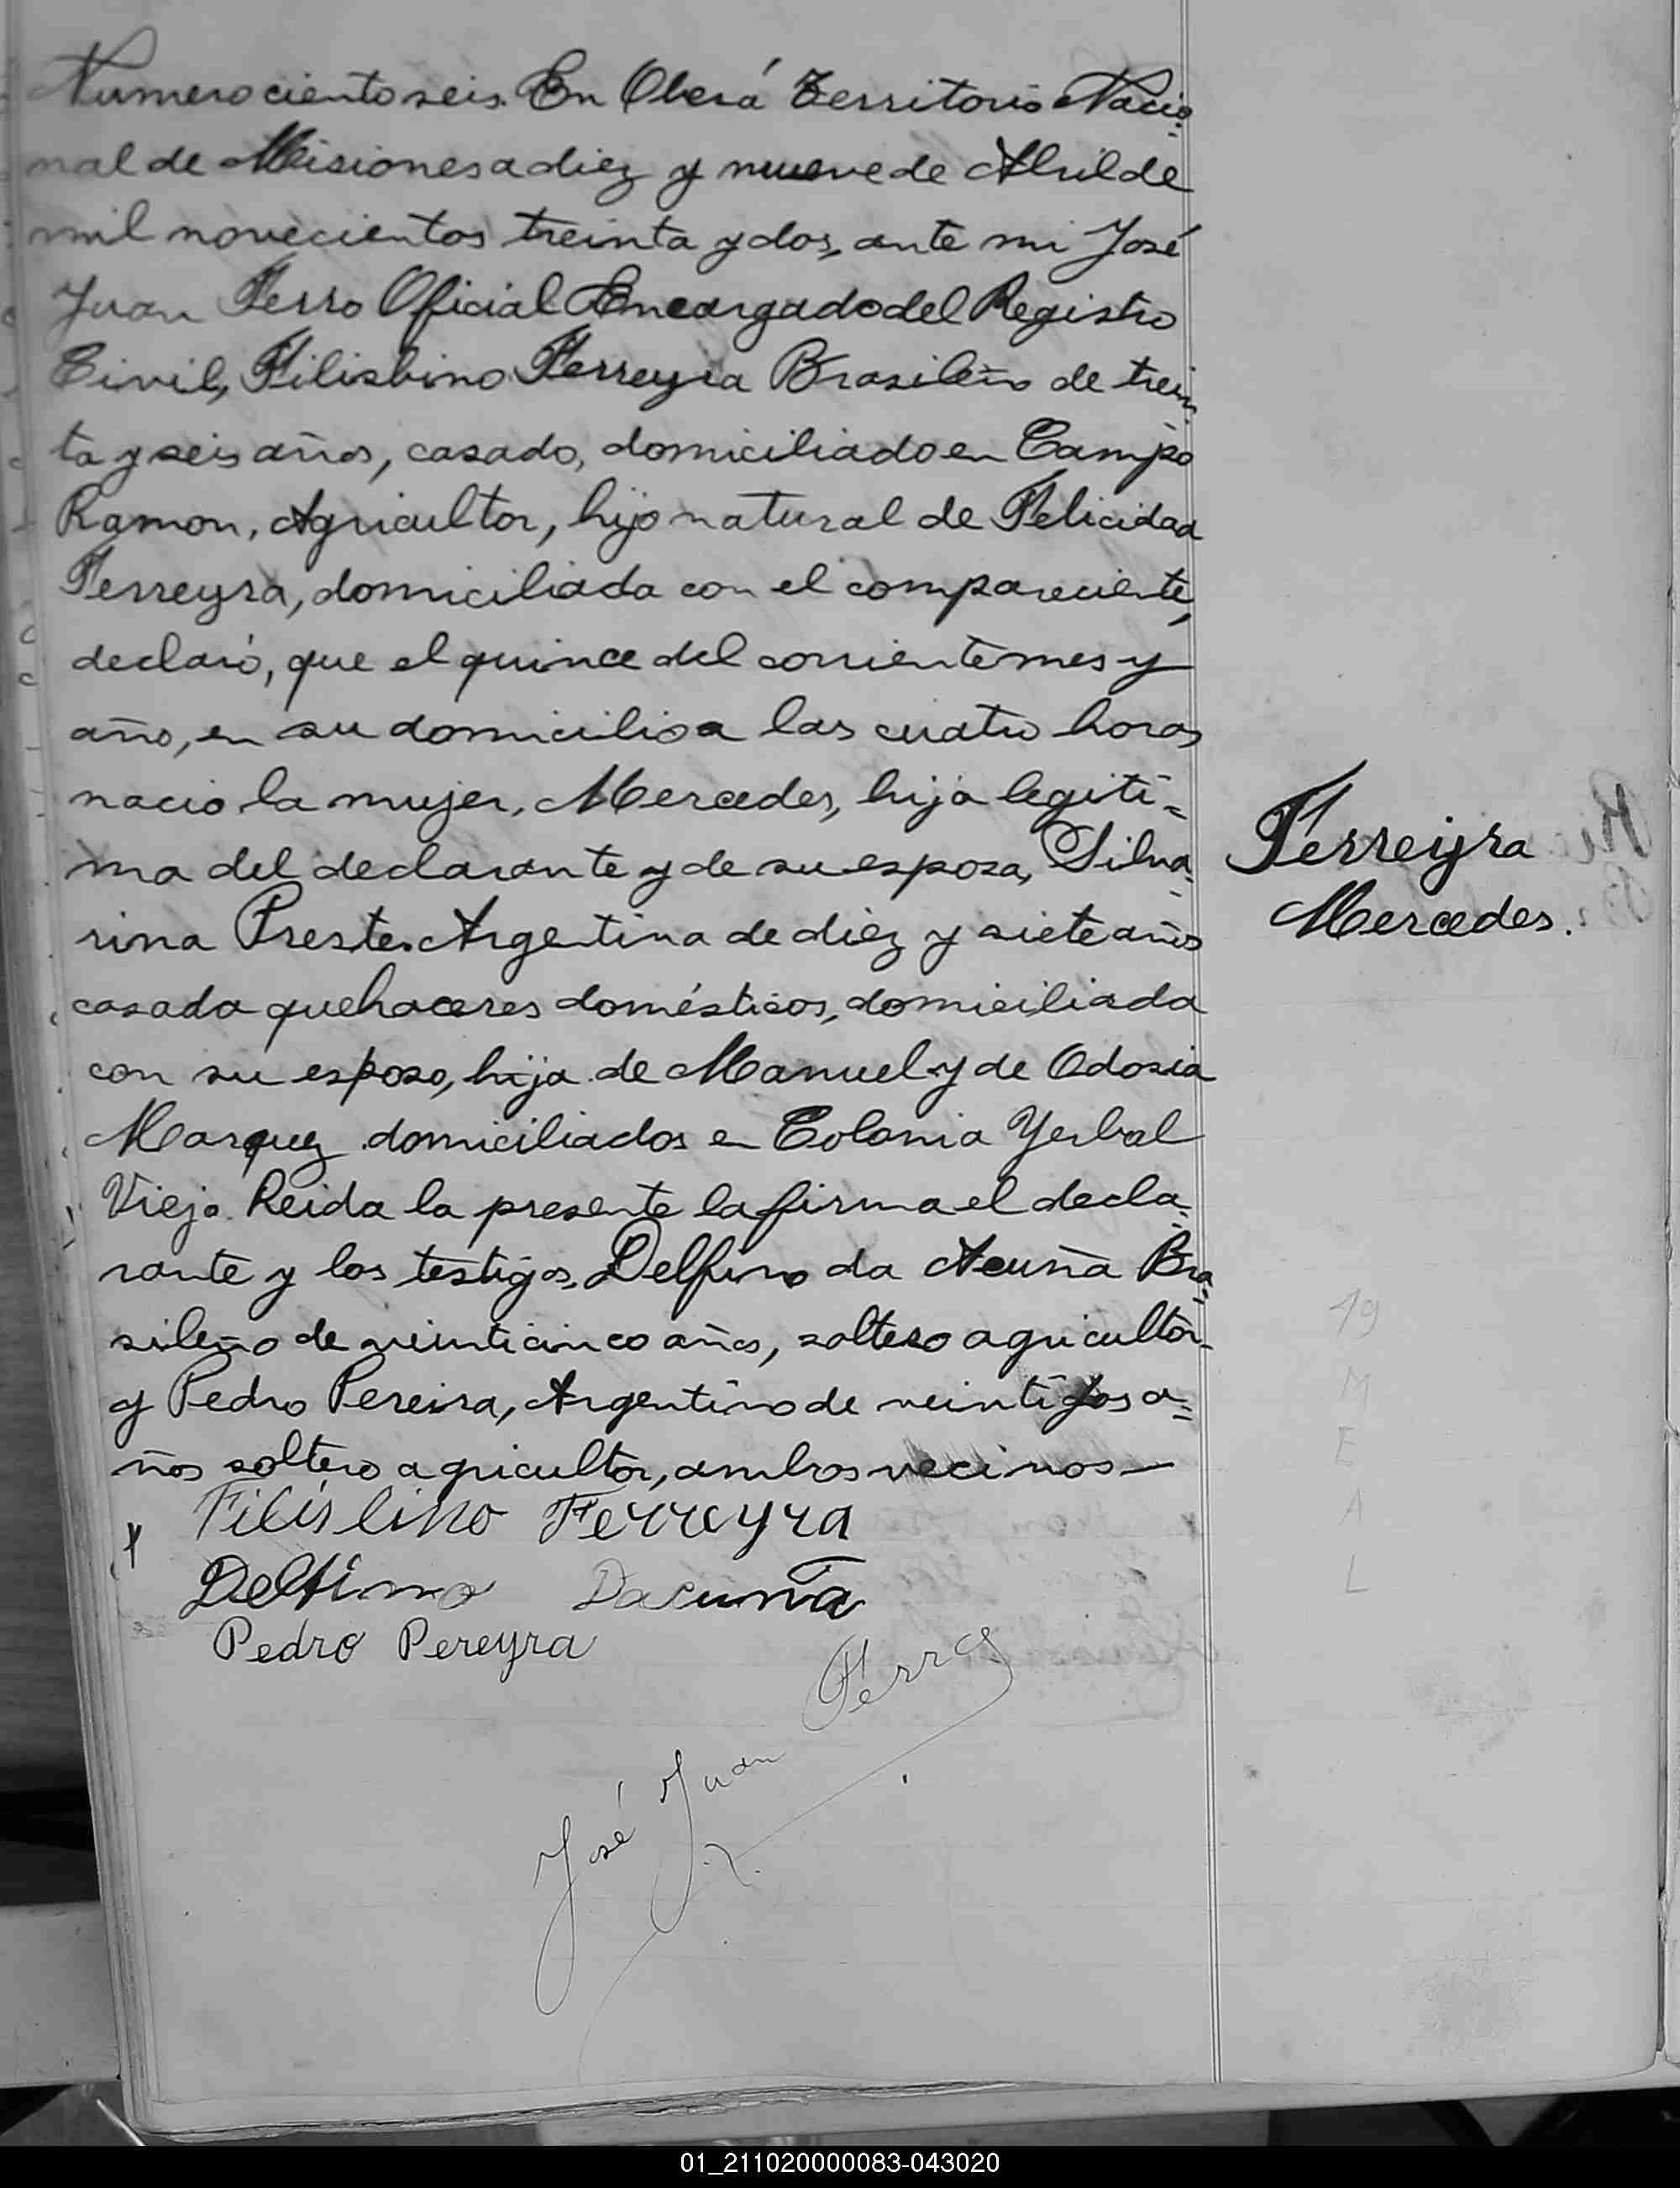 Numero ciento seis. En Oberá Territorio Nacio-
nal de Misiones a diez y nueve de Abril de
mil novecientos treinta y dos, ante mi José
Juan Ferro Oficial Encargado del Registro
Civil, Filisbino Ferreyra Brasileño de trein-
ta y seis años, casado, domiciliado en Campo
Ramon, Agricultor, hijo natural de Felicidad
Ferreyra, domiciliada con el compareciente,
declaró, que el quince del corriente mes y
año, en su domicilio a las cuatro horas
nacio la mujer, Mercedes, hija legiti=
ma del declarante y de su esposa, Silva=
rina Preste. Argentina de diez y siete años
casada quehaceres domésticos, domiciliada
con su esposo, hija de Manuel y de Odosia
Marquez domiciliados en Colonia Yerbal
Viejo. Leida la presente la firma el decla=
rante y los testigos, Delfino da Acuña Bra=
sileño de veinticinco años, soltero agricultor
y Pedro Pereira, Argentino de veintidos a=
ños soltero agricultor, ambos vecinos—
Ferreyra
Mercedes.
Filislino Ferreyra
Delfino Dacuña
Pedro Pereyra
José Juan Ferro
19
M
E
A
L
01_211020000083-043020